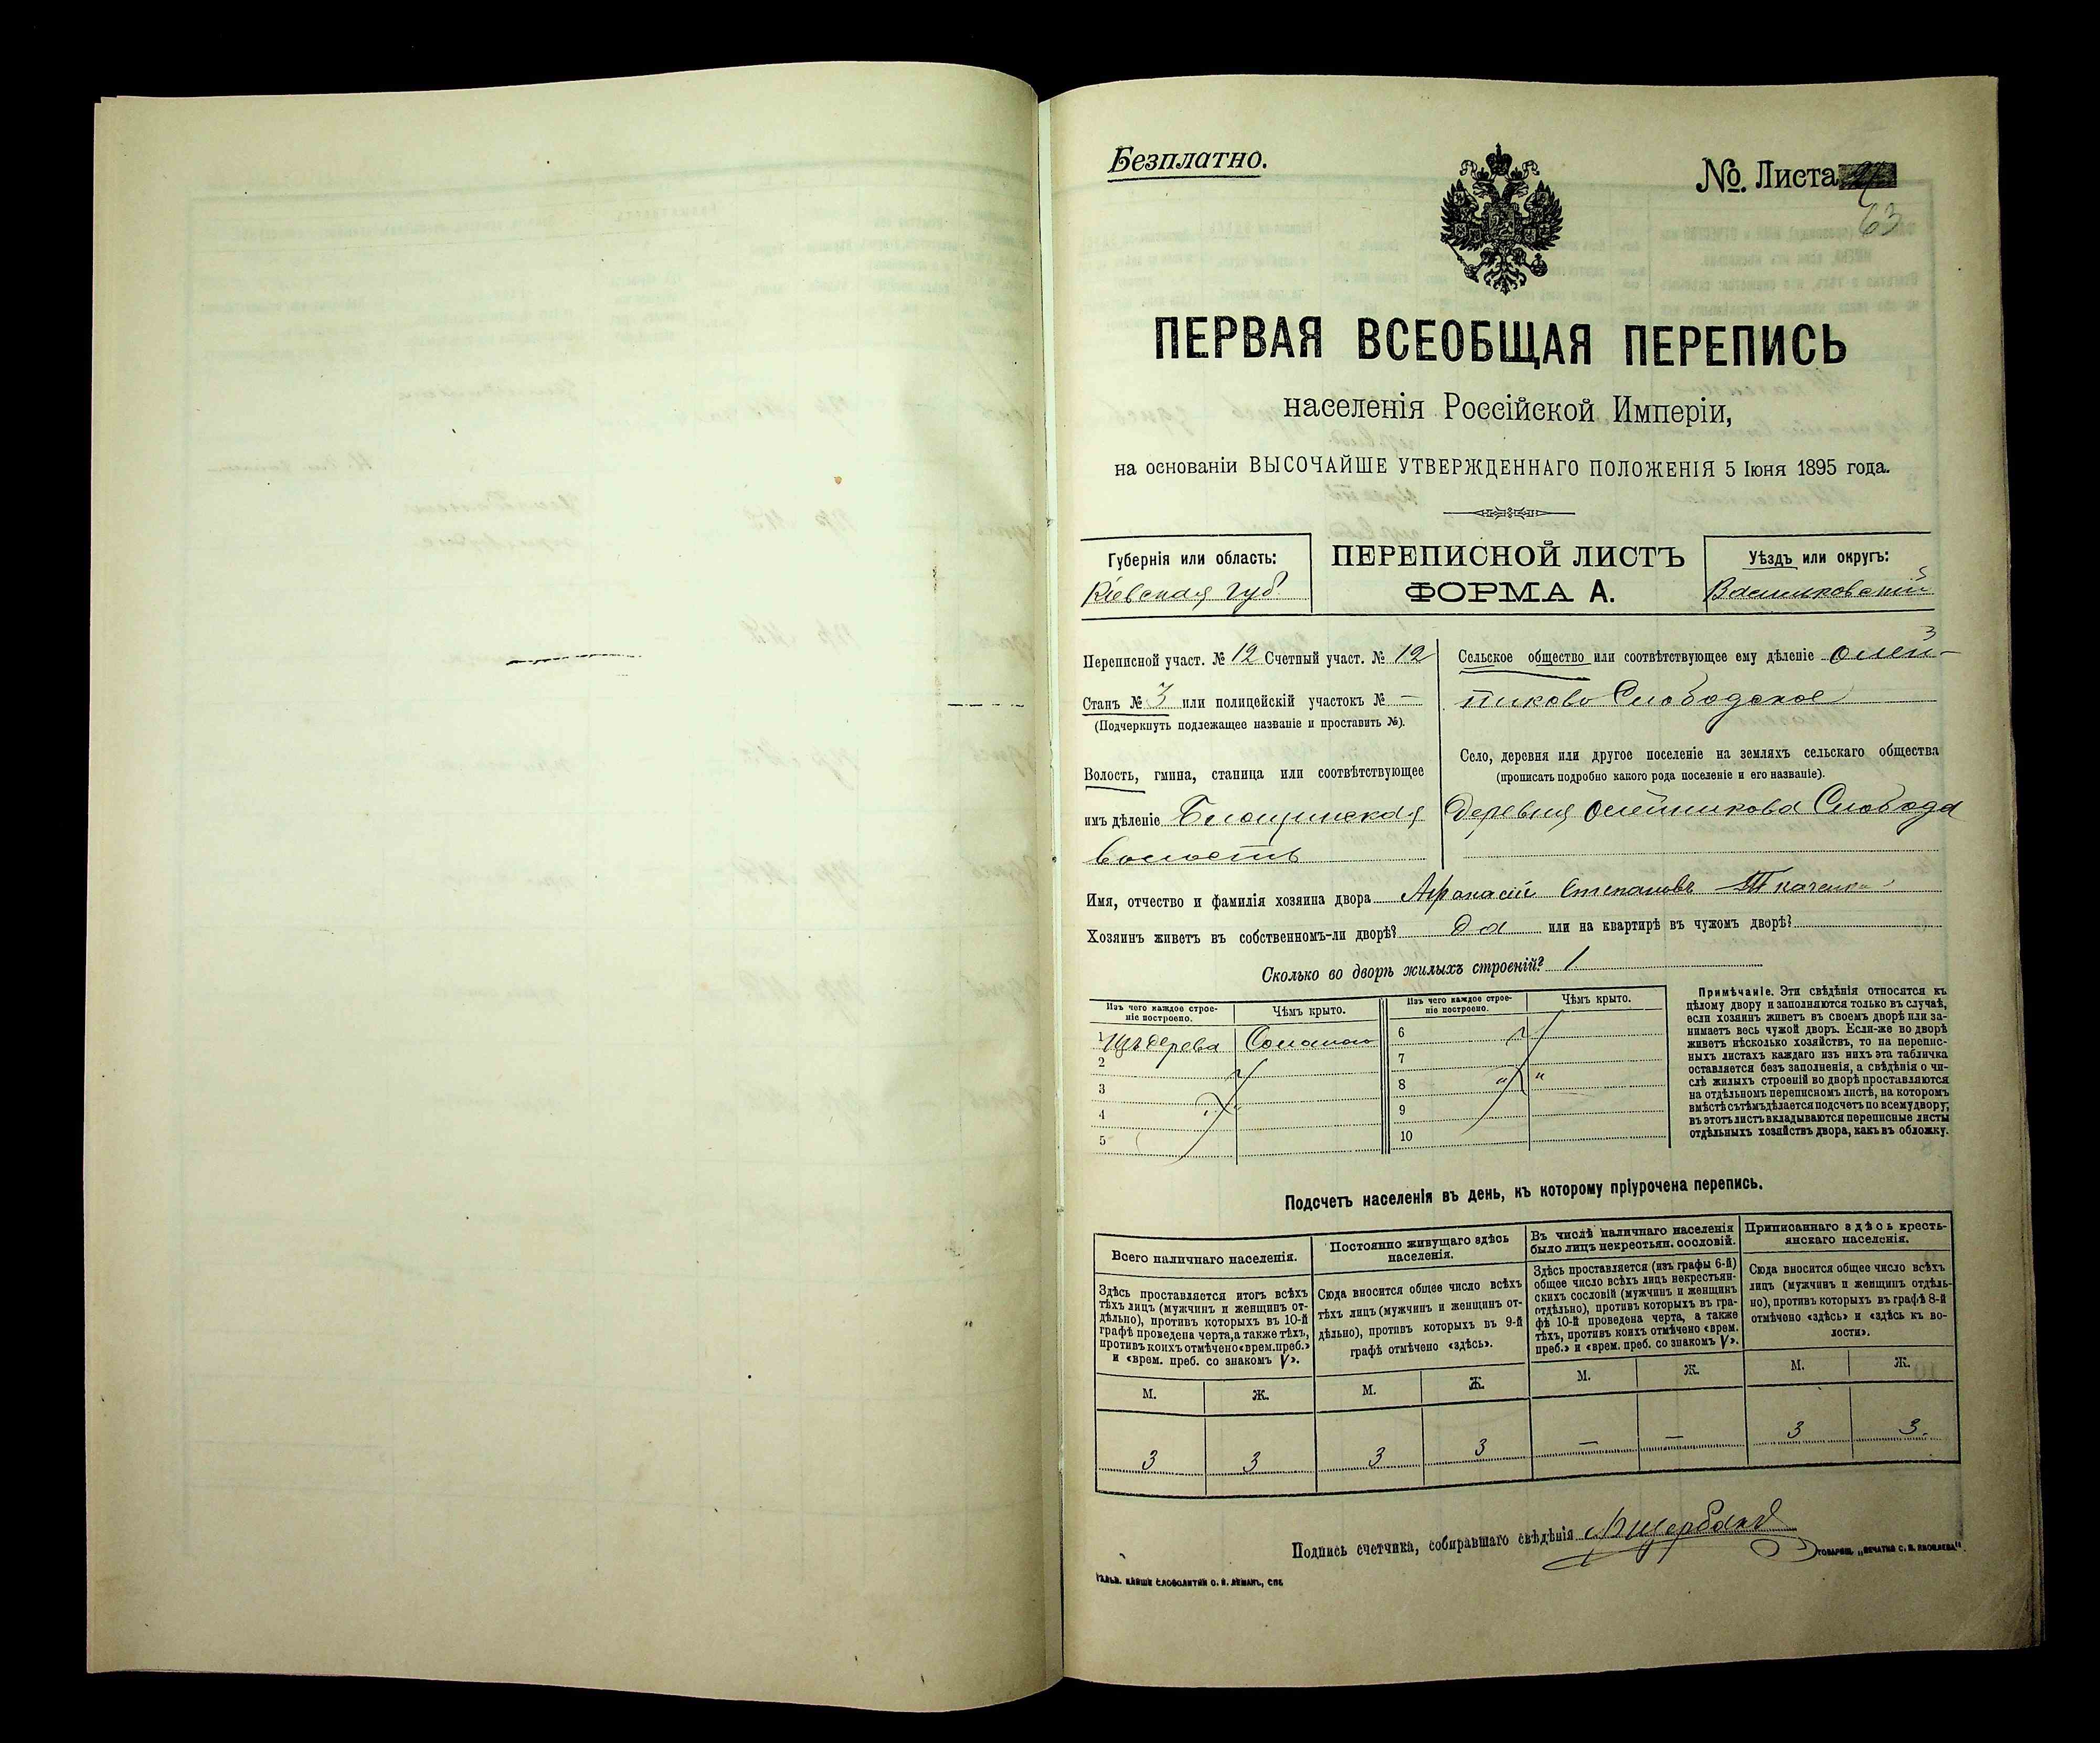 Безплатно.
№. Листа
63
ПЕРВАЯ ВСЕОБЩАЯ ПЕРЕПИСЬ
населенія Россійской Имперіи,
на основаніи ВЫСОЧАЙШЕ УТВЕРЖДЕННАГО ПОЛОЖЕНІЯ 5 Іюня 1895 года.
Губернія или область:
Кіевская губ.
ПЕРЕПИСНОЙ ЛИСТЪ
ФОРМА А.
Уѣздъ или округъ:
Васильковскій
Переписной участ. № 12 Счетный участ. № 12
Станъ № 3 или полицейскій участокъ № —
(Подчеркнуть подлежащее названіе и проставить №).
Волость, гмина, станица или соотвѣтствующее
имъ дѣленіе
волость
Сельское общество или соотвѣтствующее ему дѣленіе Олей-
никово Слободское
Село, деревня или другое поселеніе на земляхъ сельскаго общества
(прописать подробно какого рода поселеніе и его названіе).
Деревня Олейникова Слобода
Имя, отчество и фамилія хозяина двора Афанасій Степановъ Ткаченко
Хозяинъ живетъ въ собственномъ-ли дворѣ? да или на квартирѣ въ чужомъ дворѣ?
Сколько во дворѣ жилыхъ строеній? 1
Изъ чего каждое строе-
ніе построено.
Чѣмъ крыто.
Изъ чего каждое строе-
ніе построено.
Чѣмъ крыто.
1 Изъ дерева Соломою
2
3
4
5
6
7
8
9
10
Примѣчаніе. Эти свѣдѣнія относятся къ
цѣлому двору и заполняются только въ случаѣ,
если хозяинъ живетъ въ своемъ дворѣ или за-
нимаетъ весь чужой дворъ. Если-же во дворѣ
живетъ нѣсколько хозяйствъ, то на перепис-
ныхъ листахъ каждаго изъ нихъ эта табличка
оставляется безъ заполненія, а свѣдѣнія о чи-
слѣ жилыхъ строеній во дворѣ проставляются
на отдѣльномъ переписномъ листѣ, на которомъ
вмѣстѣ съ тѣмъ дѣлается подсчетъ по всему двору;
въ этотъ листъ вкладываются переписные листы
отдѣльныхъ хозяйствъ двора, какъ въ обложку.
Подсчетъ населенія въ день, къ которому пріурочена перепись.
Всего наличнаго населенія.
Здѣсь проставляется итогъ всѣхъ
тѣхъ лицъ (мужчинъ и женщинъ от-
дѣльно), противъ которыхъ въ 10-й
графѣ проведена черта, а также тѣхъ,
противъ коихъ отмѣчено «врем. преб.»
и «врем. преб. со знакомъ V».
М. Ж.
3 3
Постоянно живущаго здѣсь
населенія.
Сюда вносится общее число всѣхъ
тѣхъ лицъ (мужчинъ и женщинъ от-
дѣльно), противъ которыхъ въ 9-й
графѣ отмѣчено «здѣсь».
М. Ж.
3 3
Въ числѣ наличнаго населенія
было лицъ некрестьян. сословій.
Здѣсь проставляется (изъ графы 6-й)
общее число всѣхъ лицъ некрестьян-
скихъ сословій (мужчинъ и женщинъ
отдѣльно), противъ которыхъ въ гра-
фѣ 10-й проведена черта, а также
тѣхъ, противъ коихъ отмѣчено «врем.
преб.» и «врем. преб. со знакомъ V».
М. Ж.
— —
Приписаннаго здѣсь кресть-
янскаго населенія.
Сюда вносится общее число всѣхъ
лицъ (мужчинъ и женщинъ отдѣль-
но), противъ которыхъ въ графѣ 8-й
отмѣчено «здѣсь» и «здѣсь къ во-
лости».
М. Ж.
3 3.
Подпись счетчика, собиравшаго свѣдѣнія Щербакъ
ТОВАРИЩ. „ПЕЧАТНЯ С. П. ЯКОВЛЕВА".
О. И. ЛЕМАНЪ, СПБ.